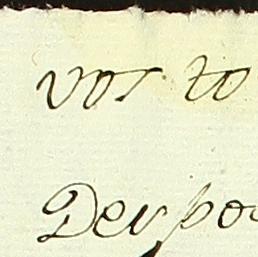 vos to
Des po